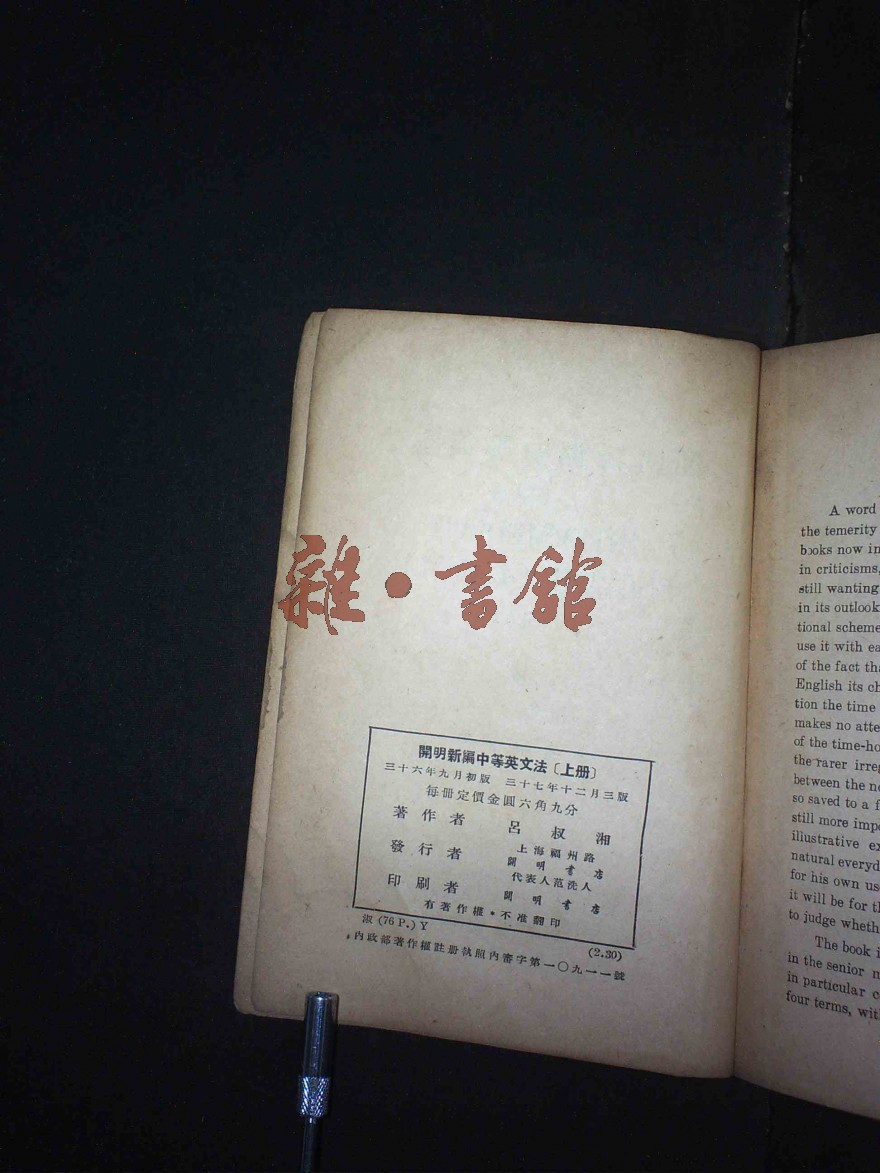 雜·書館
開明新編中等英文法〔上册〕
三十六年九月初版 三十七年十二月三版
每冊定價金圓六角九分
著作者 呂叔湘
發行者 上海福州路
開明書店
代表人范洗人
印刷者 開明書店
有著作權·不准翻印
淑(76 P.) Y (2.30)
內政部著作權註册執照內審字第一〇九一一號
A word
the temerity
books now in
in criticisms,
still wanting
in its outlook
tional scheme
use it with ea
of the fact tha
English its ch
tion the time
makes no atte
of the time-ho
the rarer irreg
between the ne
so saved to a f
still more impo
illustrative ex
natural everyd
for his own us
it will be for th
to judge wheth
The book i
in the senior m
in particular c
four terms, wit